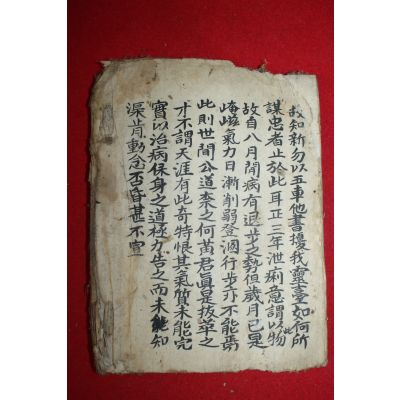 故知新勿以五車他書擾我靈臺如何所
謀忠者止於此耳正三年泄痢意謂以此物
故自八月間病有退步之勢但歲月已是
崦嵫氣力日漸削弱登溷行步亦不能焉
此則世間公道柰之何黃君眞是拔萃之
才不謂天涯有此奇特恨其氣質未能完
實以治病保身之道極力告之而未能知
深肯動念否昏甚不宣